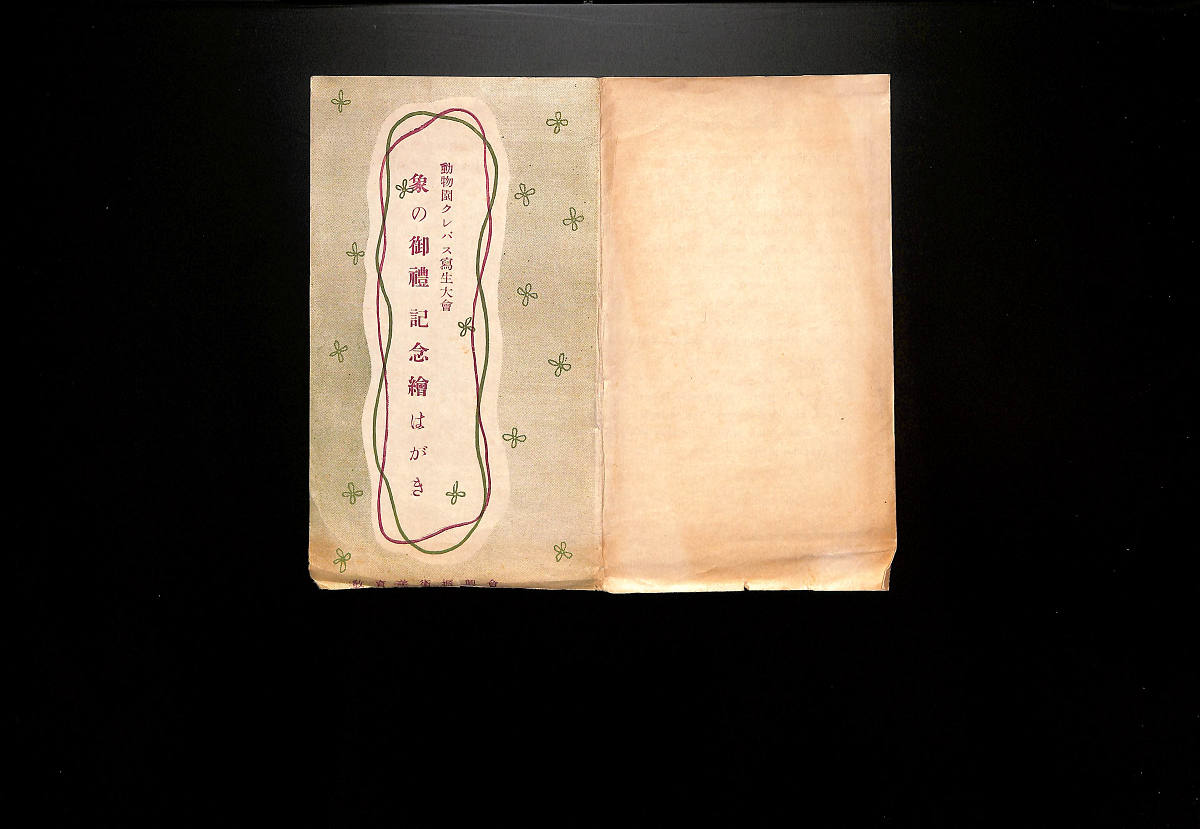 動物園クレパス寫生大會
象の御禮 記念繪はがき
教育美術振興會